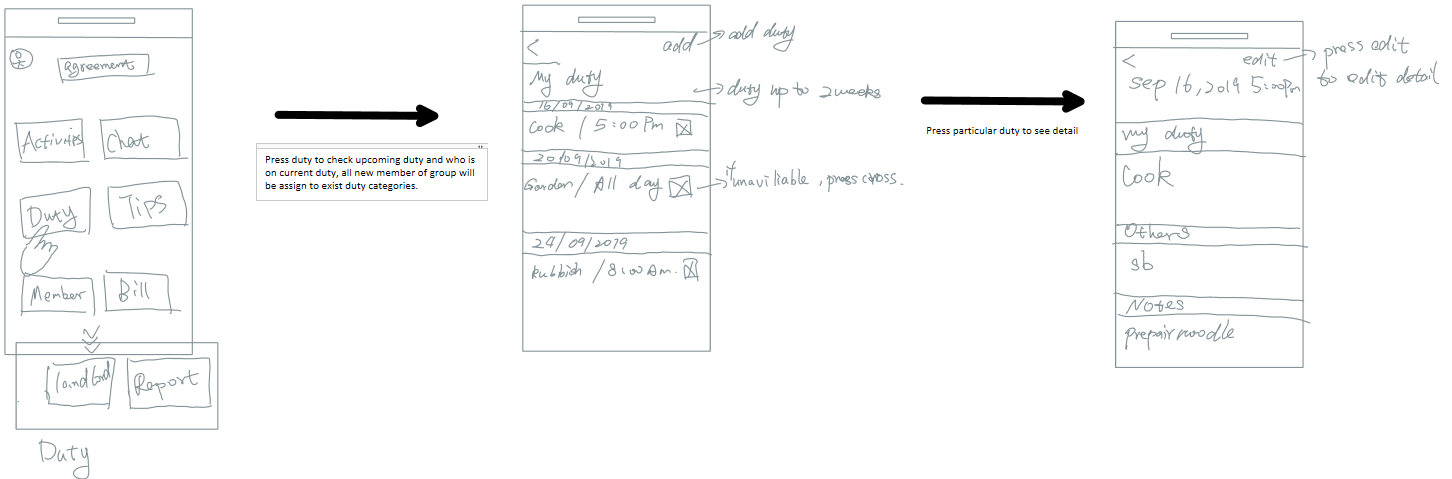 agreement
Activities
Chat
Duty
Tips
Member
Bill
landlord
Report
Duty
Press duty to check upcoming duty and who is
on current duty, all new member of group will
be assign to exist duty categories.
< add → add duty
My duty
→ duty up to 2 weeks
16/09/2019
Cook / 5:00 Pm
20/09/2019
Garden / All day
→ if unaviliable, press cross.
24/09/2019
Rubbish / 8:00 Am.
Press particular duty to see detail
< edit → press edit
to edit detail
Sep 16, 2019 5:00pm
my duty
Cook
Others
sb
Notes
prepair noodle